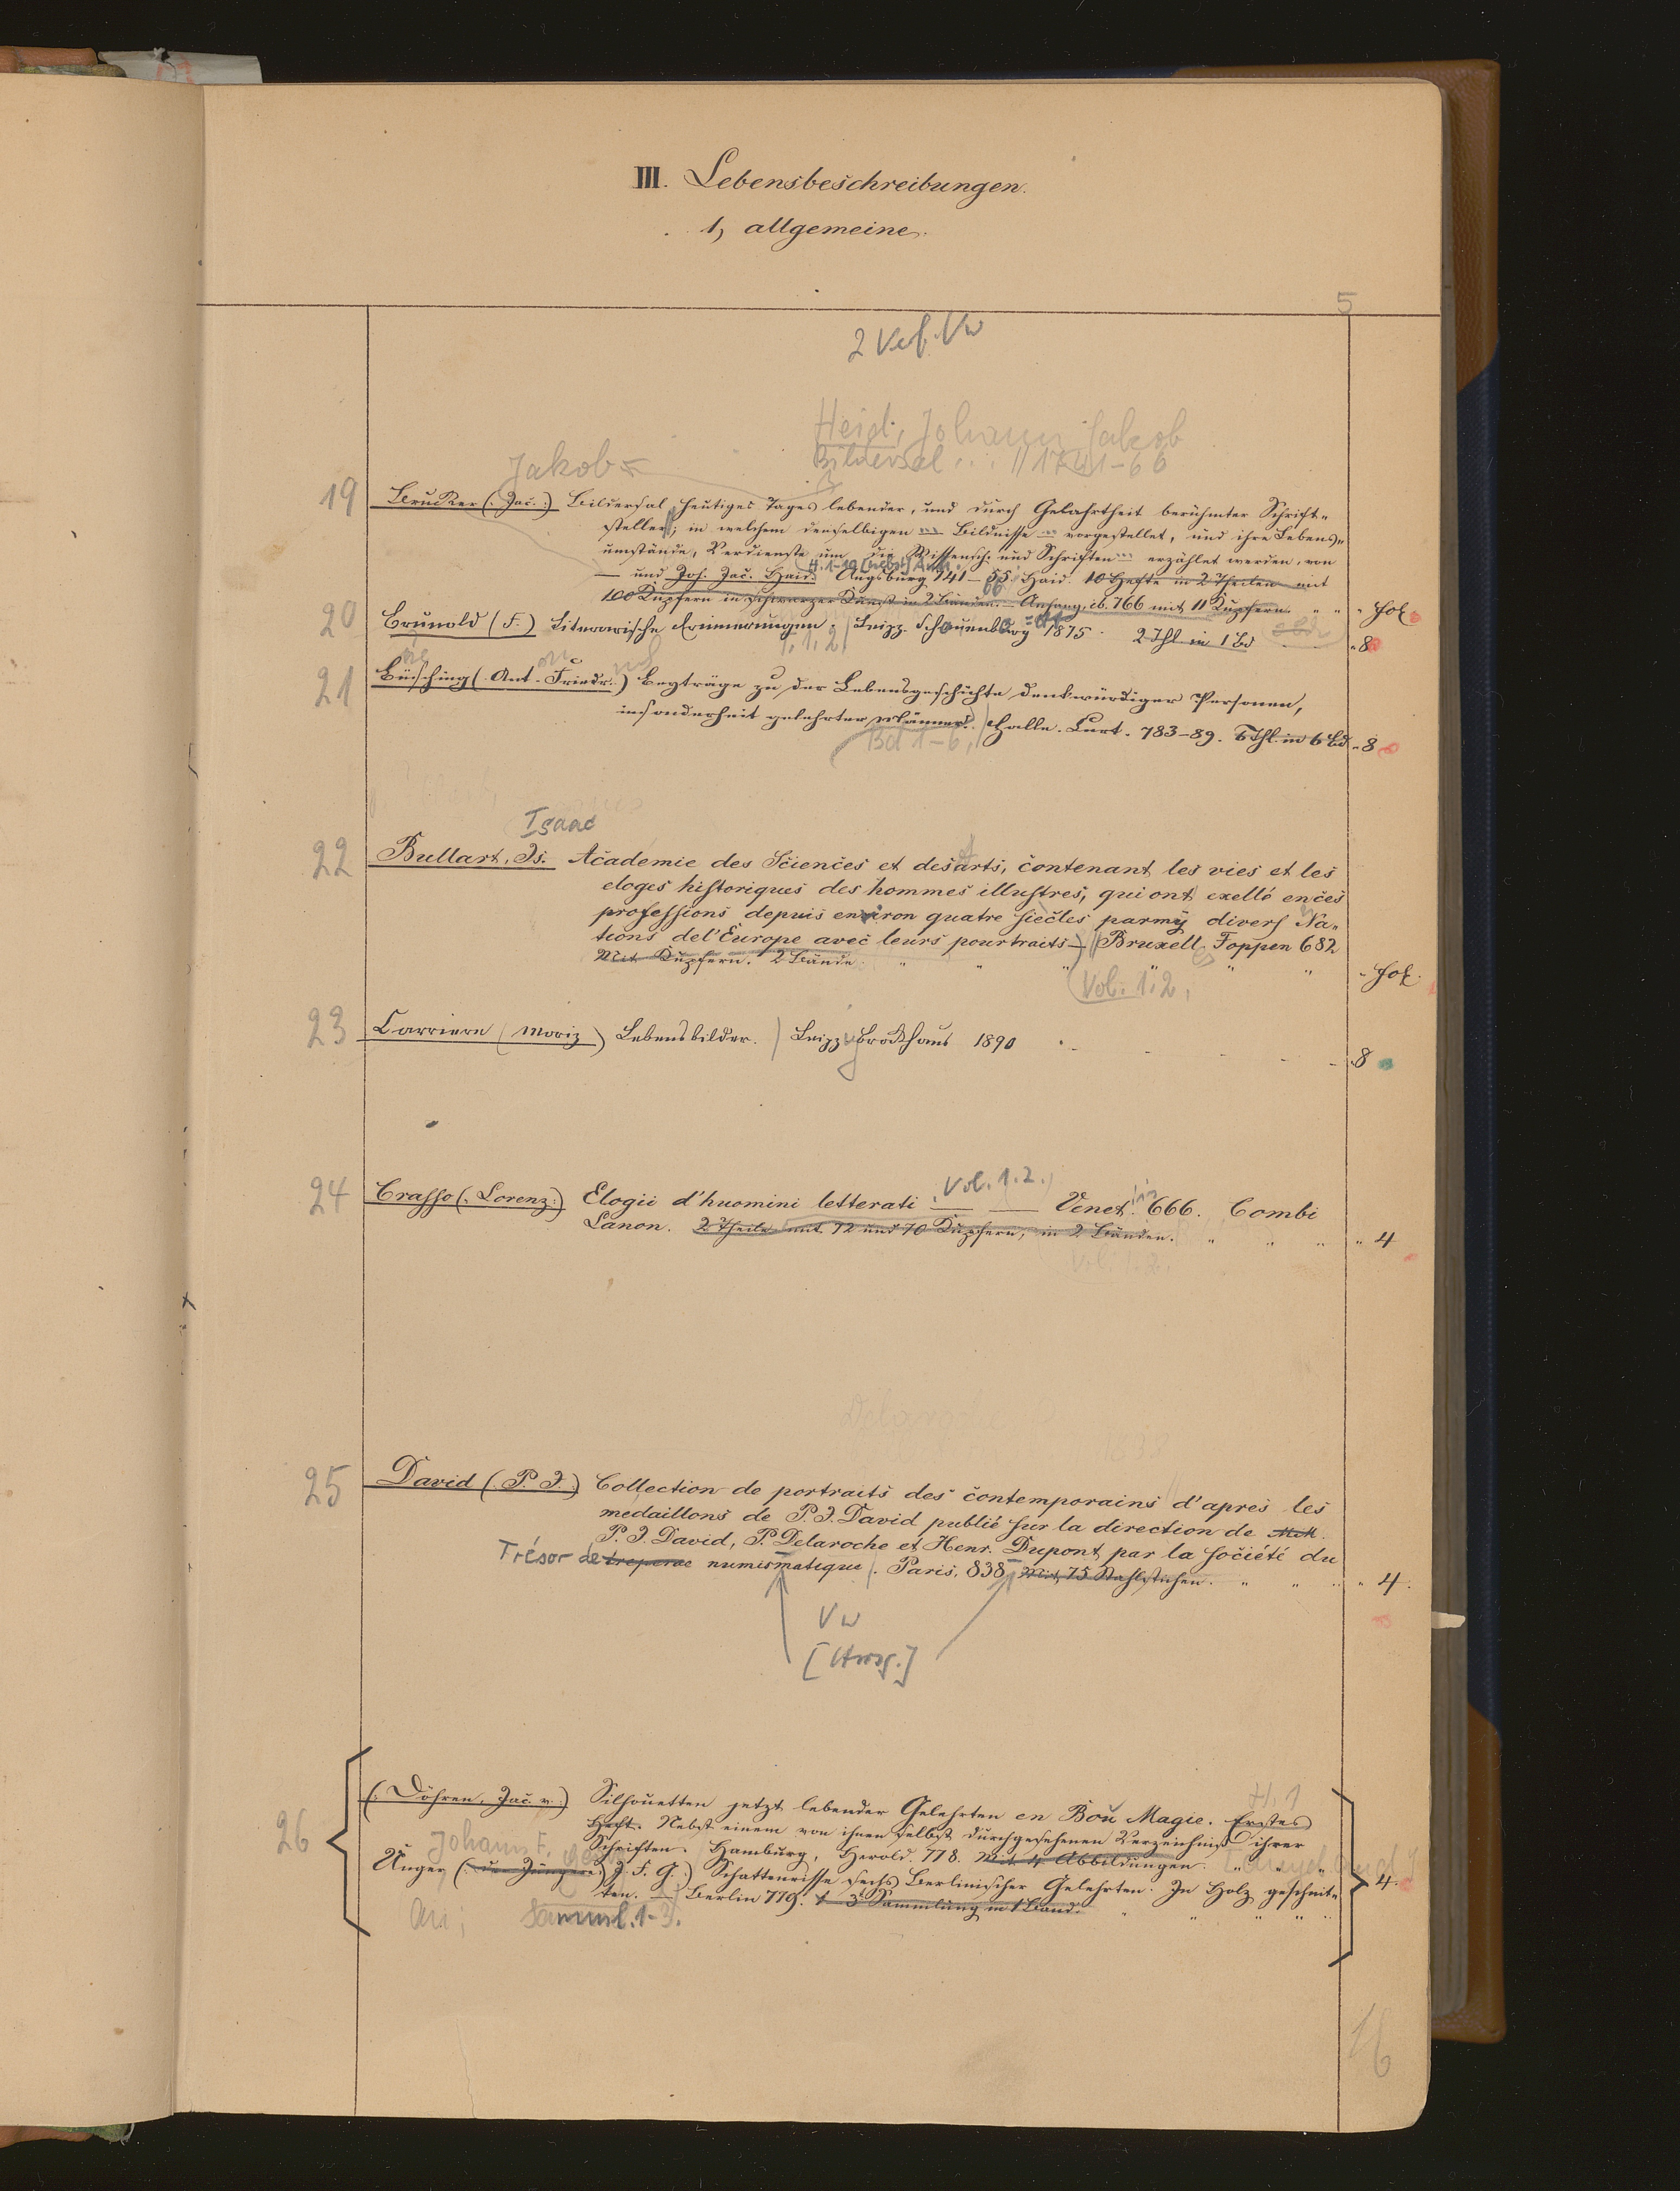 III. Lebensbeschreibungen.
1, allgemeine.
5
2 Verf. Vw
Heid, Johann Jakob
Bildersal ... // 1741-66
Jakob =
19 Brucker (: Jac. :) Bildersal heutiges Tages lebender, und durch Gelahrtheit berühmter Schrift-
steller; in welchem denselbigen ... Bildnisse ... vorgestellet, und ihre Lebens-
umstände, Verdienste um die Wissensch. und Schriften ... erzählet werden, von
H. 1-10 [nebst] Anh.
— und Joh. Jac. Haid. Augsburg 741-55 Haid. 10 Hefte in 2 Theilen mit
66
100 Kupfern in schwarzer Kunst in 2 Bänden. — Anhang. ib. 766 mit 11 Kupfern. " " " fol.
20 Brunold (F.) Literarische Erinnerungen. Leipz. Schauenburg 1875. 2 Thl. in 1 Bd " 8
T. 1. 2.
21 Büsching (Ant. Friedr.) Beyträge zu der Lebensgeschichte denkwürdiger Personen,
insonderheit gelehrter Männer. Halle. Curt. 783-89. 6 Thl. in 6 Bd " 8
Bd 1-6,
Isaac
22 Bullart, Is. Academie des Sciences et des arts, contenant les vies et les
eloges historiques des hommes illustres, qui ont exellé en ces
professions depuis environ quatre siecles parmy divers Na-
tions de l'Europe avec leurs pourtraits —) // Bruxell. Foppen 682
Mit Kupfern. 2 Bände. " " " " " - fol.
(Vol. 1. 2.
23 Carriere (Moriz) Lebensbilder. Leipz. Brockhaus 1890 - - - - 8
Vol. 1. 2.)
24 Crasso (: Lorenz :) Elogii d'huomini letterati — — Venet. 666. Combi
Lanon. 2 Theile mit 72 und 70 Kupfern, in 2 Bänden. " " " " 4
Vol. 1. 2.
Delaroche
1838
25 David (P. J.) Collection de portraits des contemporains d'apres les
medaillons de P. J. David publié sur la direction de MM.
P. J. David, P. Delaroche et Henr. Dupont par la société du
Trésor de numismatique. Paris. 838 Mit 75 Stahlstichen. " " " " 4.
Vw
[Hrsg.]
H. 1
26 (: Döhren, Jac. v. :) Silhouetten jetzt lebender Gelehrten en Bou Magie. Erstes
Heft. Nebst einem von ihnen selbst durchgesehenen Verzeichniß ihrer
Johann F.
Schriften. Hamburg, Herold. 778. Mit 4 Abbildungen. " " "
Unger (: der Jüngere :) J. F. G.) Schattenrisse sechs Berlinischer Gelehrten. In Holz geschnit- 4.
ten. — Berlin 779. 1-3t Sammlung in 1 Band. " " " " "
An: Samml. 1-3.
16